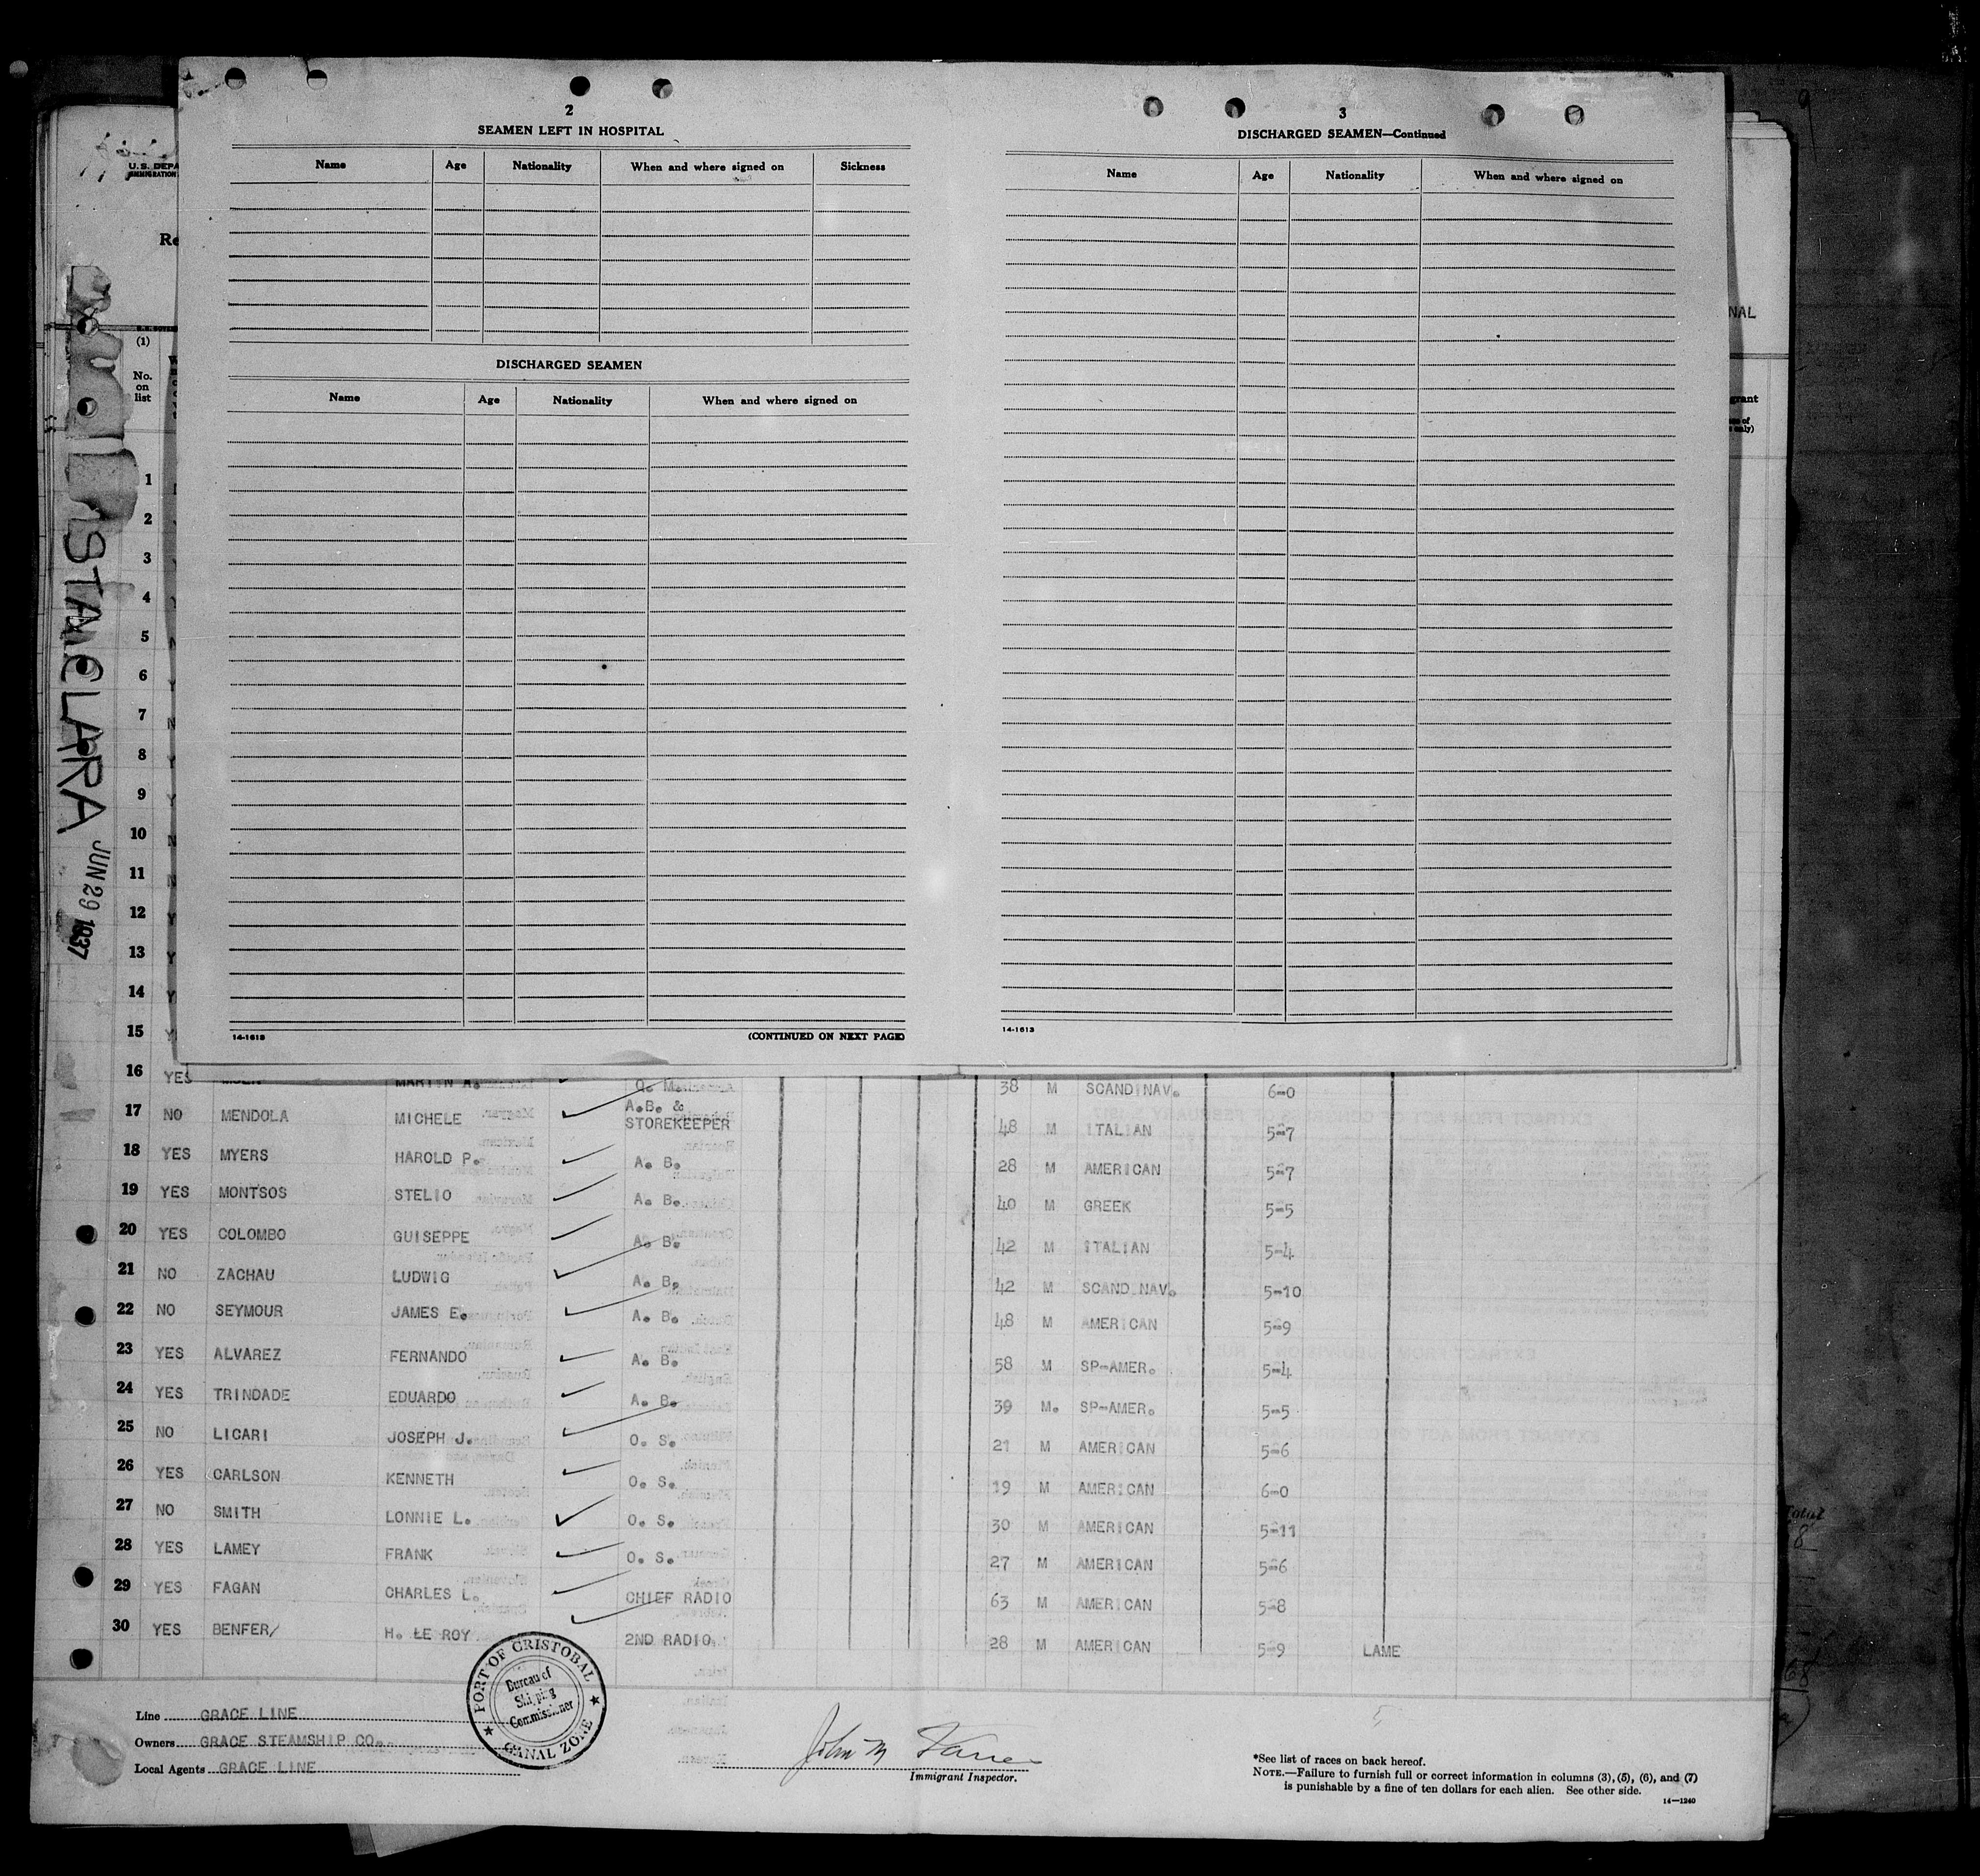 2
SEAMEN LEFT IN HOSPITAL
Name Age Nationality When and where signed on Sickness
DISCHARGED SEAMEN
Name Age Nationality When and where signed on
14-1613 (CONTINUED ON NEXT PAGE)
3
DISCHARGED SEAMEN—Continued
Name Age Nationality When and where signed on
14-1613
U. S. DEPA
IMMIGRATION
Re
(1)
No.
on
list
NAL
grant
only)
STA CLARA
JUN 29 1937
1
2
3
4
5
6
7
8
9
10
11
12
13
14
15
16 YES MARTIN A. Q. M. 38 M SCANDINAV. 6-0
17 NO MENDOLA MICHELE A.B. & STOREKEEPER 48 M ITALIAN 5-7
18 YES MYERS HAROLD P. A. B. 28 M AMERICAN 5-7
19 YES MONTSOS STELIO A. B. 40 M GREEK 5-5
20 YES COLOMBO GUISEPPE A. B. 42 M ITALIAN 5-4
21 NO ZACHAU LUDWIG A. B. 42 M SCAND NAV. 5-10
22 NO SEYMOUR JAMES E. A. B. 48 M AMERICAN 5-9
23 YES ALVAREZ FERNANDO A. B. 58 M SP-AMER. 5-4
24 YES TRINDADE EDUARDO A. B. 39 M. SP-AMER. 5-5
25 NO LICARI JOSEPH J. O. S. 21 M AMERICAN 5-6
26 YES CARLSON KENNETH O. S. 19 M AMERICAN 6-0
27 NO SMITH LONNIE L. O. S. 30 M AMERICAN 5-11
28 YES LAMEY FRANK O. S. 27 M AMERICAN 5-6
29 YES FAGAN CHARLES L. CHIEF RADIO 63 M AMERICAN 5-8
30 YES BENFER/ H. LE ROY 2ND RADIO 28 M AMERICAN 5-9 LAME
Line GRACE LINE
Owners GRACE STEAMSHIP CO.
Local Agents GRACE LINE
PORT OF CRISTOBAL
Bureau of
Shipping
Commissioner
CANAL ZONE
John M
Immigrant Inspector.
*See list of races on back hereof.
NOTE.—Failure to furnish full or correct information in columns (3), (5), (6), and (7)
is punishable by a fine of ten dollars for each alien. See other side.
14—1240
Total
8
68